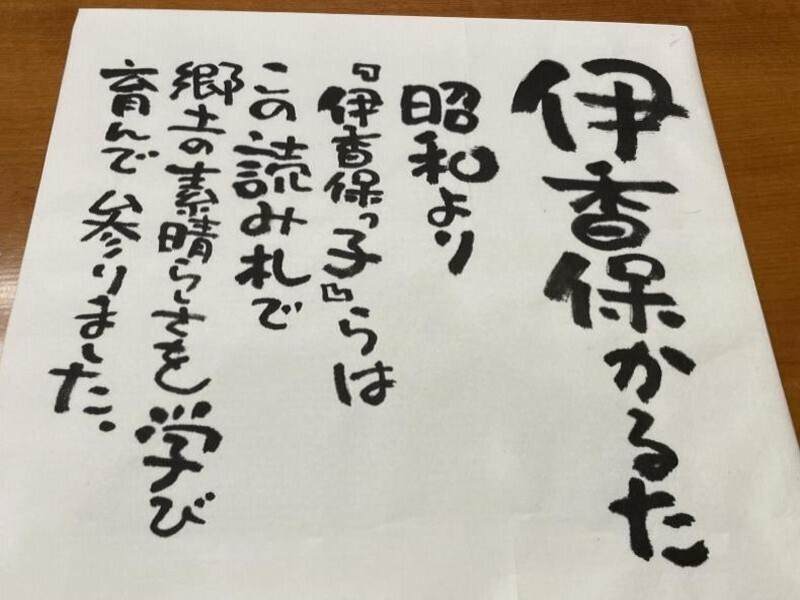 伊香保かるた
昭和より
『伊香保っ子』らは
この読み札で
郷土の素晴らしさを学び
育んで参りました。